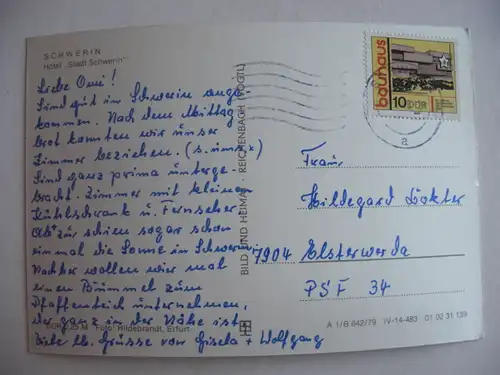 SCHWERIN
Hotel „Stadt Schwerin"
Liebe Omi!
Sind gut in Schwerin ange-
kommen. Nach dem Mittag
brot konnten wir unser
Zimmer beziehen. (s. uns. x)
Sind ganz prima unterge-
bracht. Zimmer mit kleinem
Kühlschrank u. Fernseher.
zur schien sogar schon
einmal die Sonne in Schwerin.
Nachher wollen wir mal
einen Bummel zum
Pfaffenteich unternehmen,
der ganz in der Nähe ist.
Viele lb. Grüsse von Gisela + Wolfgang
25 M Foto: Hildebrandt, Erfurt
BILD UND HEIMAT REICHENBACH (VOGTL)
bauhaus
10 DDR
a
Frau
Hildegard
7904 Elsterwerda
PSF 34
A 1/B 642/79 IV-14-483 01 02 31 139